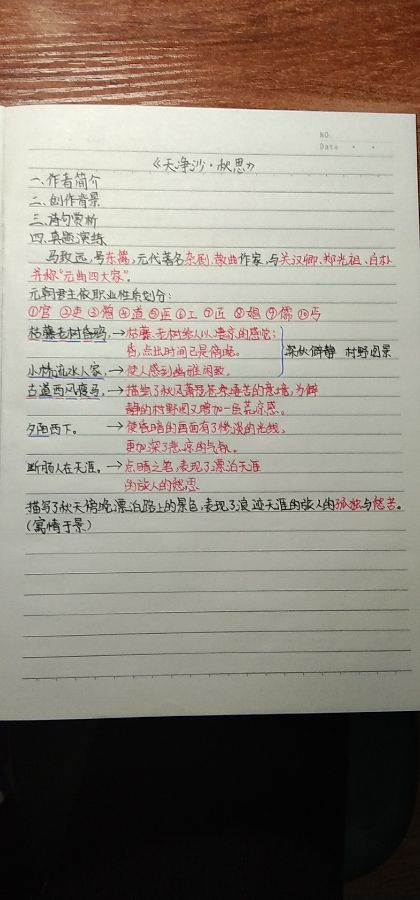 NO.
Date
《天净沙·秋思》
一、作者简介
二、创作背景
三、诗句赏析
四、真题演练
马致远,号东篱,元代著名杂剧、散曲作家,与关汉卿、郑光祖、白朴
并称"元曲四大家"。
元朝君主依职业性质划分:
①官 ②吏 ③僧 ④道 ⑤医 ⑥工 ⑦匠 ⑧娼 ⑨儒 ⑩丐
枯藤老树昏鸦,→枯藤、老树给人以凄凉的感觉;
昏,点出时间已是傍晚。
深秋僻静 村野图景
小桥流水人家,→使人感到幽雅闲致。
古道西风瘦马,→描绘了秋风萧瑟苍凉凄苦的意境,为僻
静的村野图又增加一层荒凉感。
夕阳西下。→使昏暗的画面有了惨淡的光线,
更加深了悲凉的气氛。
断肠人在天涯。→点睛之笔,表现了漂泊天涯
的旅人的愁思
描写了秋天傍晚漂泊路上的景色,表现了浪迹天涯的旅人的孤独与愁苦。
(寓情于景)